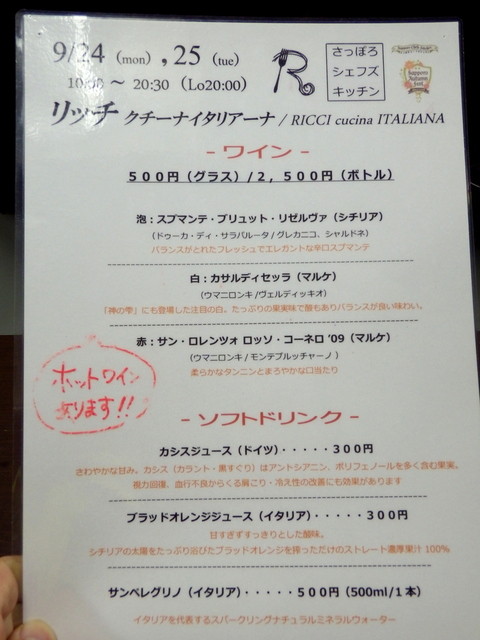 9/24 (mon) , 25 (tue)
10:00 ～ 20:30 (Lo20:00)
R
さっぽろ
シェフズ
キッチン
sapporo
Autumn
fest
リッチ クチーナイタリアーナ / RICCI cucina ITALIANA
- ワイン -
500円（グラス）/2，500円（ボトル）
泡：スプマンテ・ブリュット・リゼルヴァ（シチリア）
（ドゥーカ・ディ・サラパルータ / グレカニコ、シャルドネ）
バランスがとれたフレッシュでエレガントな辛口スプマンテ
白：カサルディセッラ（マルケ）
（ウマニロンキ /ヴェルディッキオ）
「神の雫」にも登場した注目の白。たっぷりの果実味で酸もありバランスが良い味わい。
赤：サン・ロレンツォ ロッソ・コーネロ '09（マルケ）
（ウマニロンキ / モンテプルッチャーノ ）
柔らかなタンニンとまろやかな口当たり
ホットワイン
あります!!
- ソフトドリンク -
カシスジュース（ドイツ）・・・・・300円
さわやかな甘み。カシス（カラント・黒すぐり）はアントシアニン、ポリフェノールを多く含む果実。
視力回復、血行不良からくる肩こり・冷え性の改善にも効果があります
ブラッドオレンジジュース（イタリア）・・・・・300円
甘すぎずすっきりとした酸味。
シチリアの太陽をたっぷり浴びたブラッドオレンジを搾っただけのストレート濃厚果汁 100%
サンペレグリノ（イタリア）・・・・・500円（500ml/1本）
イタリアを代表するスパークリングナチュラルミネラルウォーター